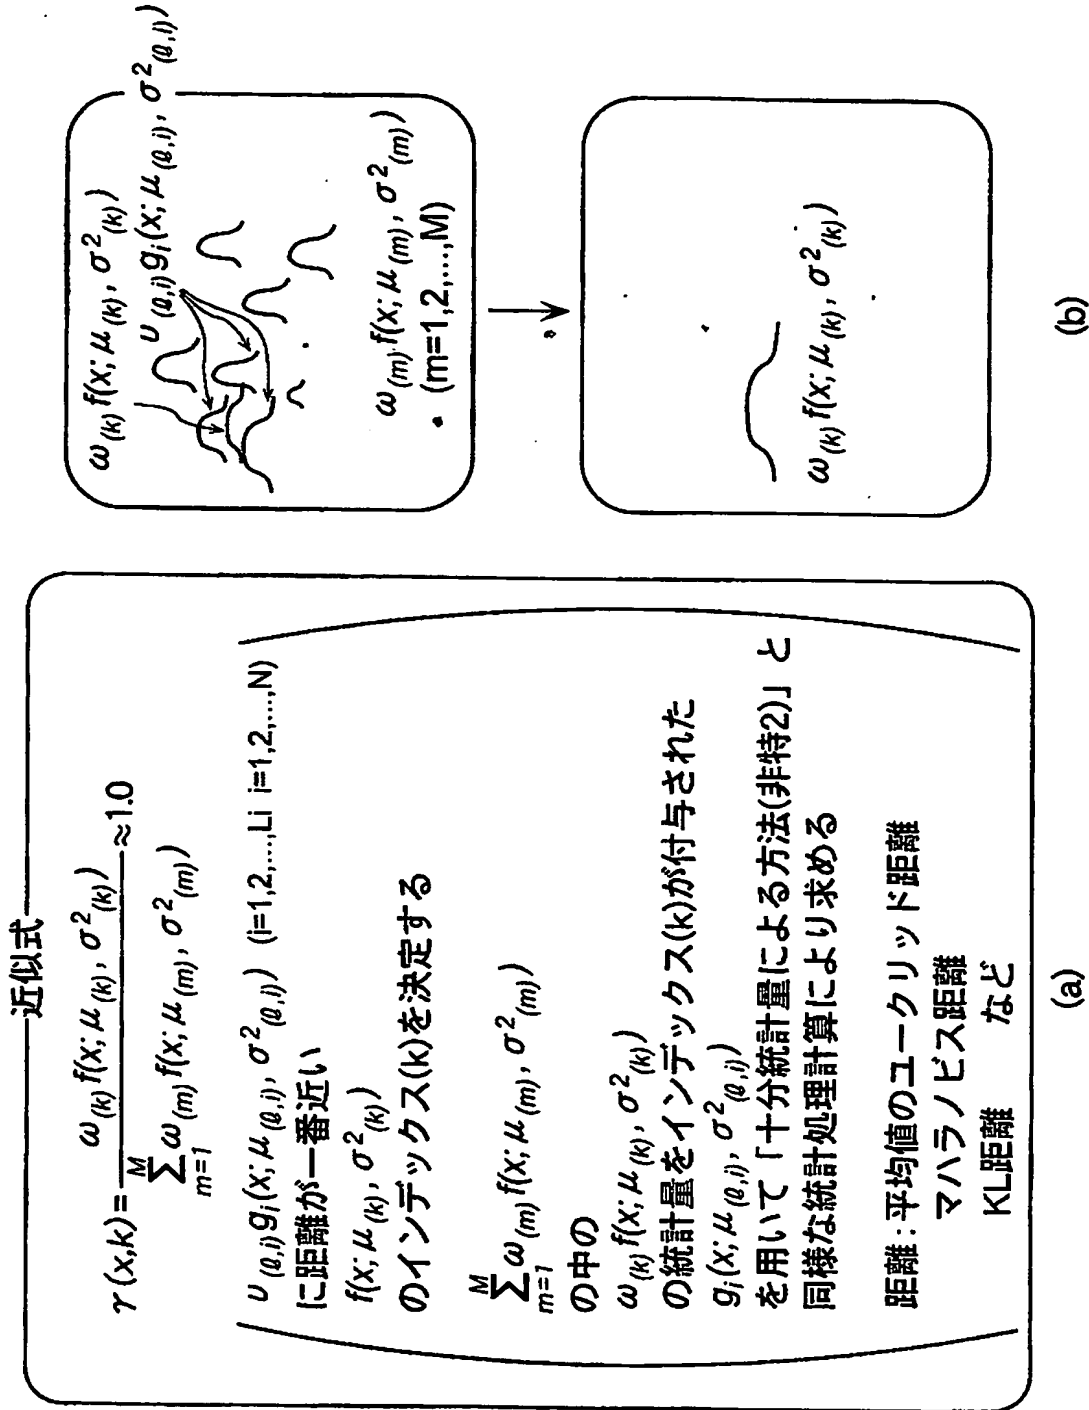 近似式
γ(x,k) = ω(k) f(x; μ(k), σ²(k)) / Σ_{m=1}^{M} ω(m) f(x; μ(m), σ²(m)) ≈1.0
υ(ℓ,i) gi(x; μ(ℓ,i), σ²(ℓ,i)) (i=1,2,...,Li i=1,2,...,N)
に距離が一番近い
f(x; μ(k), σ²(k))
のインデックス(k)を決定する
Σ_{m=1}^{M} ω(m) f(x; μ(m), σ²(m))
の中の
ω(k) f(x; μ(k), σ²(k))
の統計量をインデックス(k)が付与された
gi(x; μ(ℓ,i), σ²(ℓ,i))
を用いて「十分統計量による方法(非特2)」と
同様な統計処理計算により求める
距離:平均値のユークリッド距離
マハラノビス距離
KL距離 など
(a)
ω(k) f(x; μ(k), σ²(k))
υ(ℓ,i) gi(x; μ(ℓ,i), σ²(ℓ,i))
ω(m) f(x; μ(m), σ²(m))
(m=1,2,...,M)
ω(k) f(x; μ(k), σ²(k))
(b)